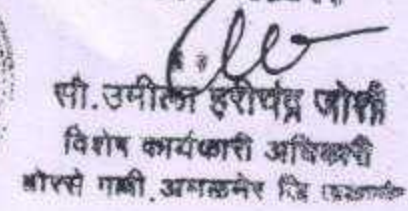 सौ.उर्मीला हरीचंद्र जोशी
विशेष कार्यकारी अधिकारी
बोरसे गल्ली.अमळनेर जि